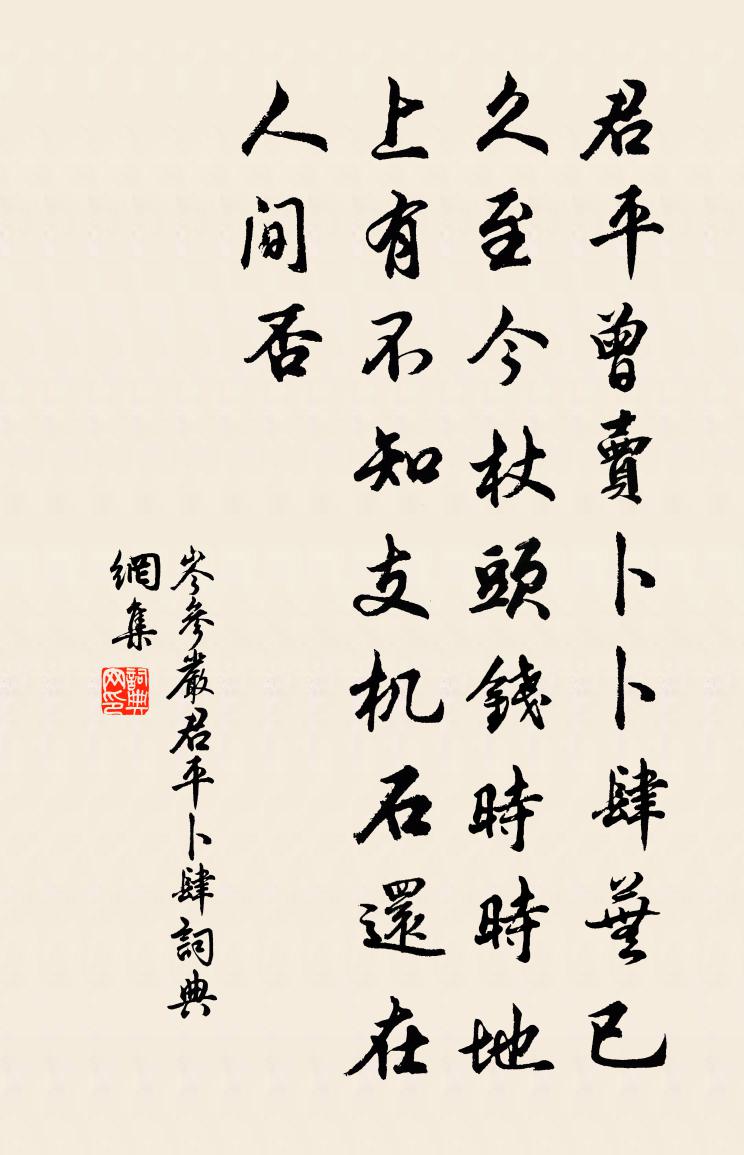 君平曾賣卜卜肆蕪已
久至今杖頭錢時時地
上有不知支机石還在
人间否
岑參嚴君平卜肆詞典
網集
詞典
网印